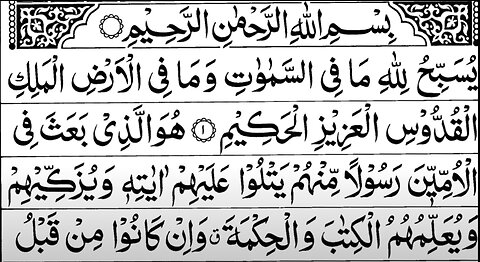 بِسْمِ اللّٰهِ الرَّحْمٰنِ الرَّحِيْمِ
يُسَبِّحُ لِلّٰهِ مَا فِى السَّمٰوٰتِ وَمَا فِى الْاَرْضِ الْمَلِكِ
الْقُدُّوْسِ الْعَزِيْزِ الْحَكِيْمِ ١ هُوَ الَّذِىْ بَعَثَ فِى
الْاُمِّيّٖنَ رَسُوْلًا مِّنْهُمْ يَتْلُوْا عَلَيْهِمْ اٰيٰتِهٖ وَيُزَكِّيْهِمْ
وَيُعَلِّمُهُمُ الْكِتٰبَ وَالْحِكْمَةَ ۗ وَاِنْ كَانُوْا مِنْ قَبْلُ